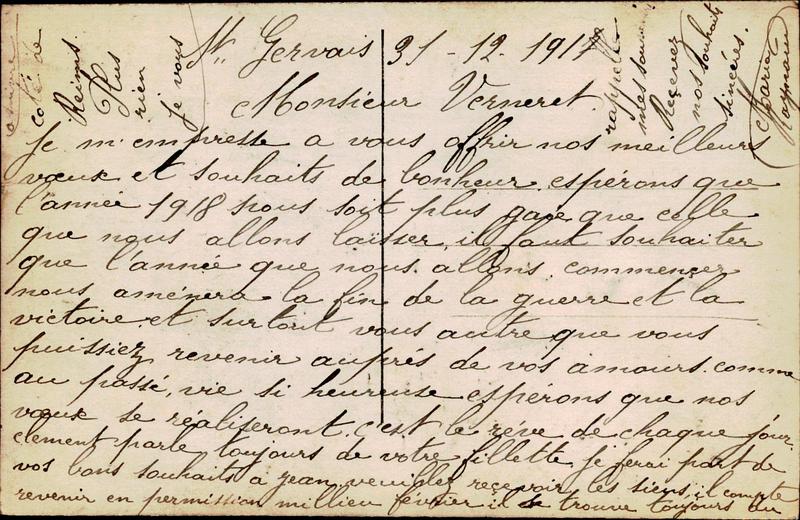 St Gervais 31-12-1917
Monsieur Verneret
je m'empresse a vous offrir nos meilleurs
vœux et souhaits de bonheur. espérons que
l'année 1918 nous soit plus gaie que celle
que nous allons laisser, il faut souhaiter
que l'année que nous allons commencer
nous aménera la fin de la guerre et la
victoire. et surtout vous autre que vous
puissiez revenir auprés de vos amours. comme
au passé, vie si heureuse espérons que nos
vœux se réaliseront. c'est le rêve de chaque jour.
clement parle toujours de votre fillette je ferai part de
vos bons souhaits a jean, veuillez reçevoir les siens, il compte
revenir en permission millieu février il se trouve toujours au
coté de
Reims.
Plus
rien
je vous
rappelle
mes
Reçevez
nos souhaits
sincéres.
Maria